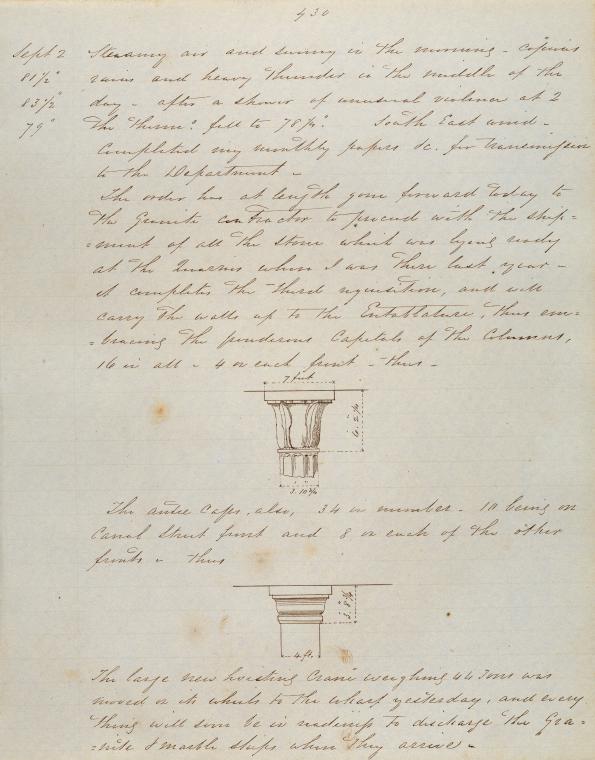 430
Sept 2 Steamy air and sunny in the morning - copious
81½° rains and heavy thunder in the middle of the
83½° day - after a shower of unusual violence at 2
79° the Thermo. fell to 78½°. South East wind -
Completed my monthly papers &c. for transmission
to the Department -
The order has at length gone forward today to
the Granite contractor to proceed with the ship=
=ment of all the stone which was lying ready
at the Quarries when I was there last year -
it completes the third requisition, and will
carry the walls up to the Entablature, thus em=
=bracing the ponderous Capitals of the Columns,
16 in all - 4 on each front - thus -
7 feet
6. 2¾
3. 10¾
The antee caps, also, 34 in number - 10 being on
Canal Street front and 8 on each of the other
fronts - thus
3. 8¾
4 ft.
The large new hoisting Crane weighing 44 Tons was
moved on its wheels to the wharf yesterday, and every
thing will soon be in readiness to discharge the Gra=
=nite & marble ships when they arrive -